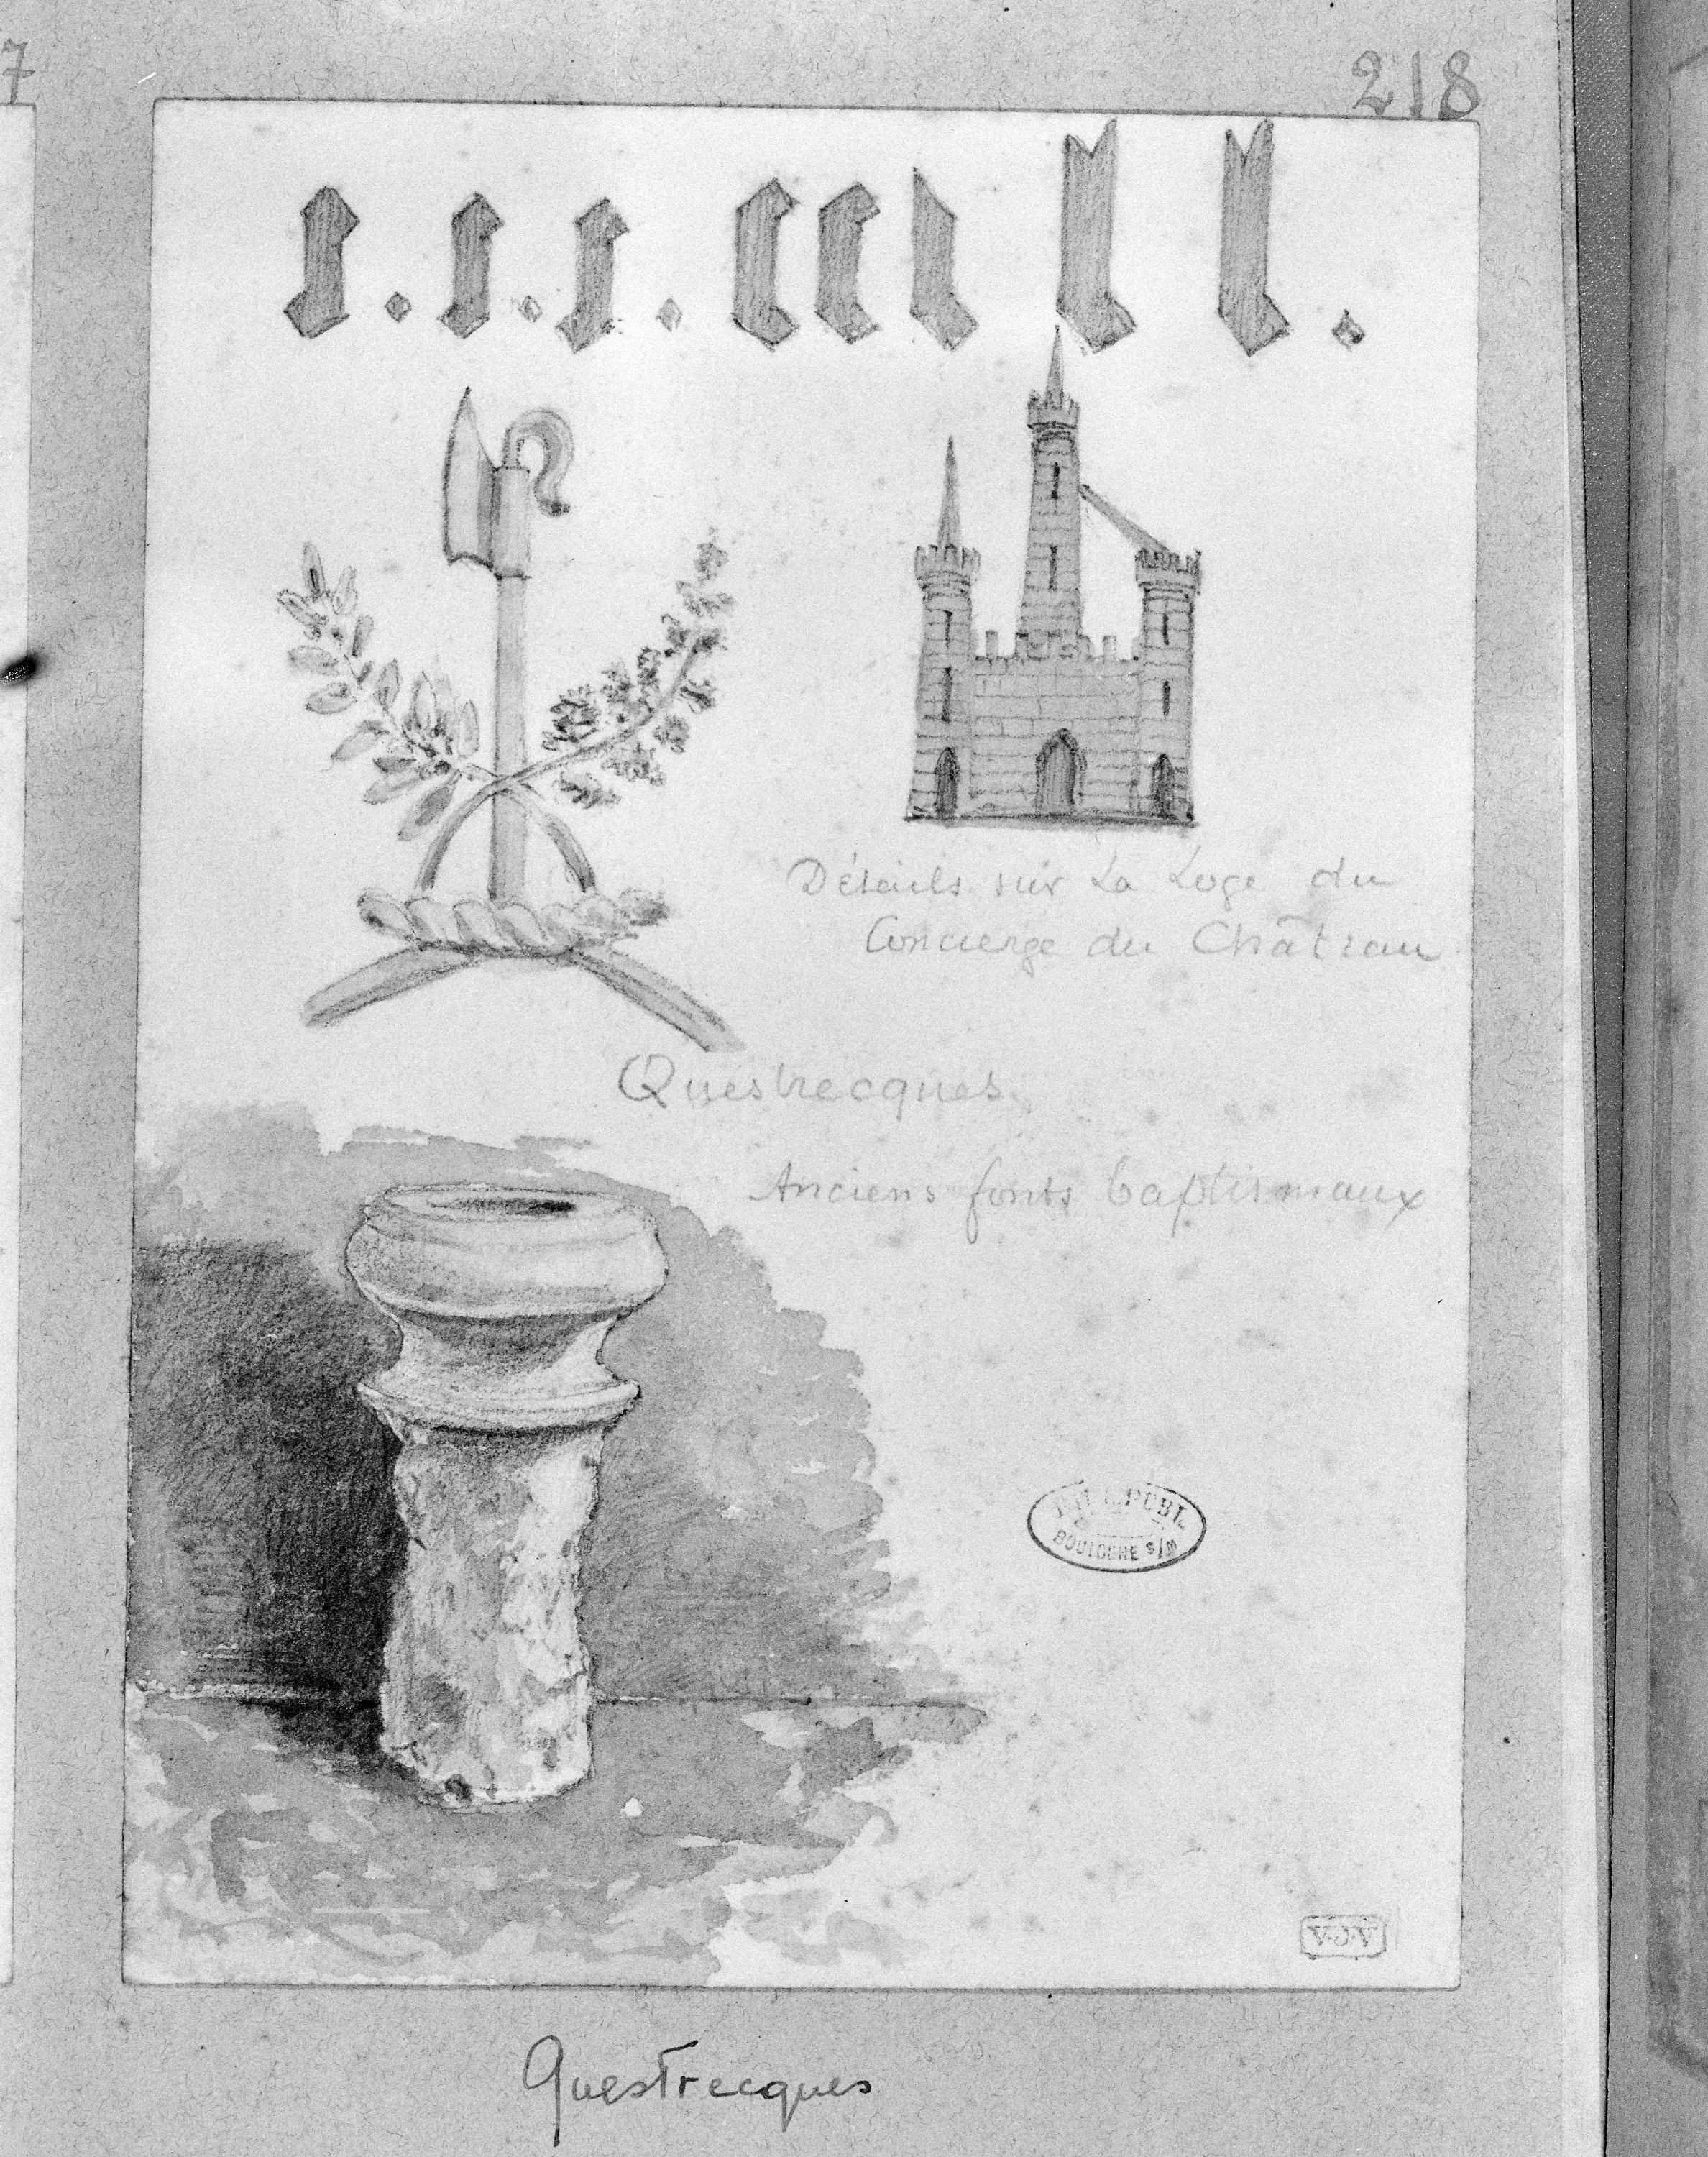 7
218
Détails sur La Loge du
Concierge du Château
Questrecques.
Anciens fonts baptismaux
PUBL.
BOULOGNE s/m
V.J.V
Questrecques